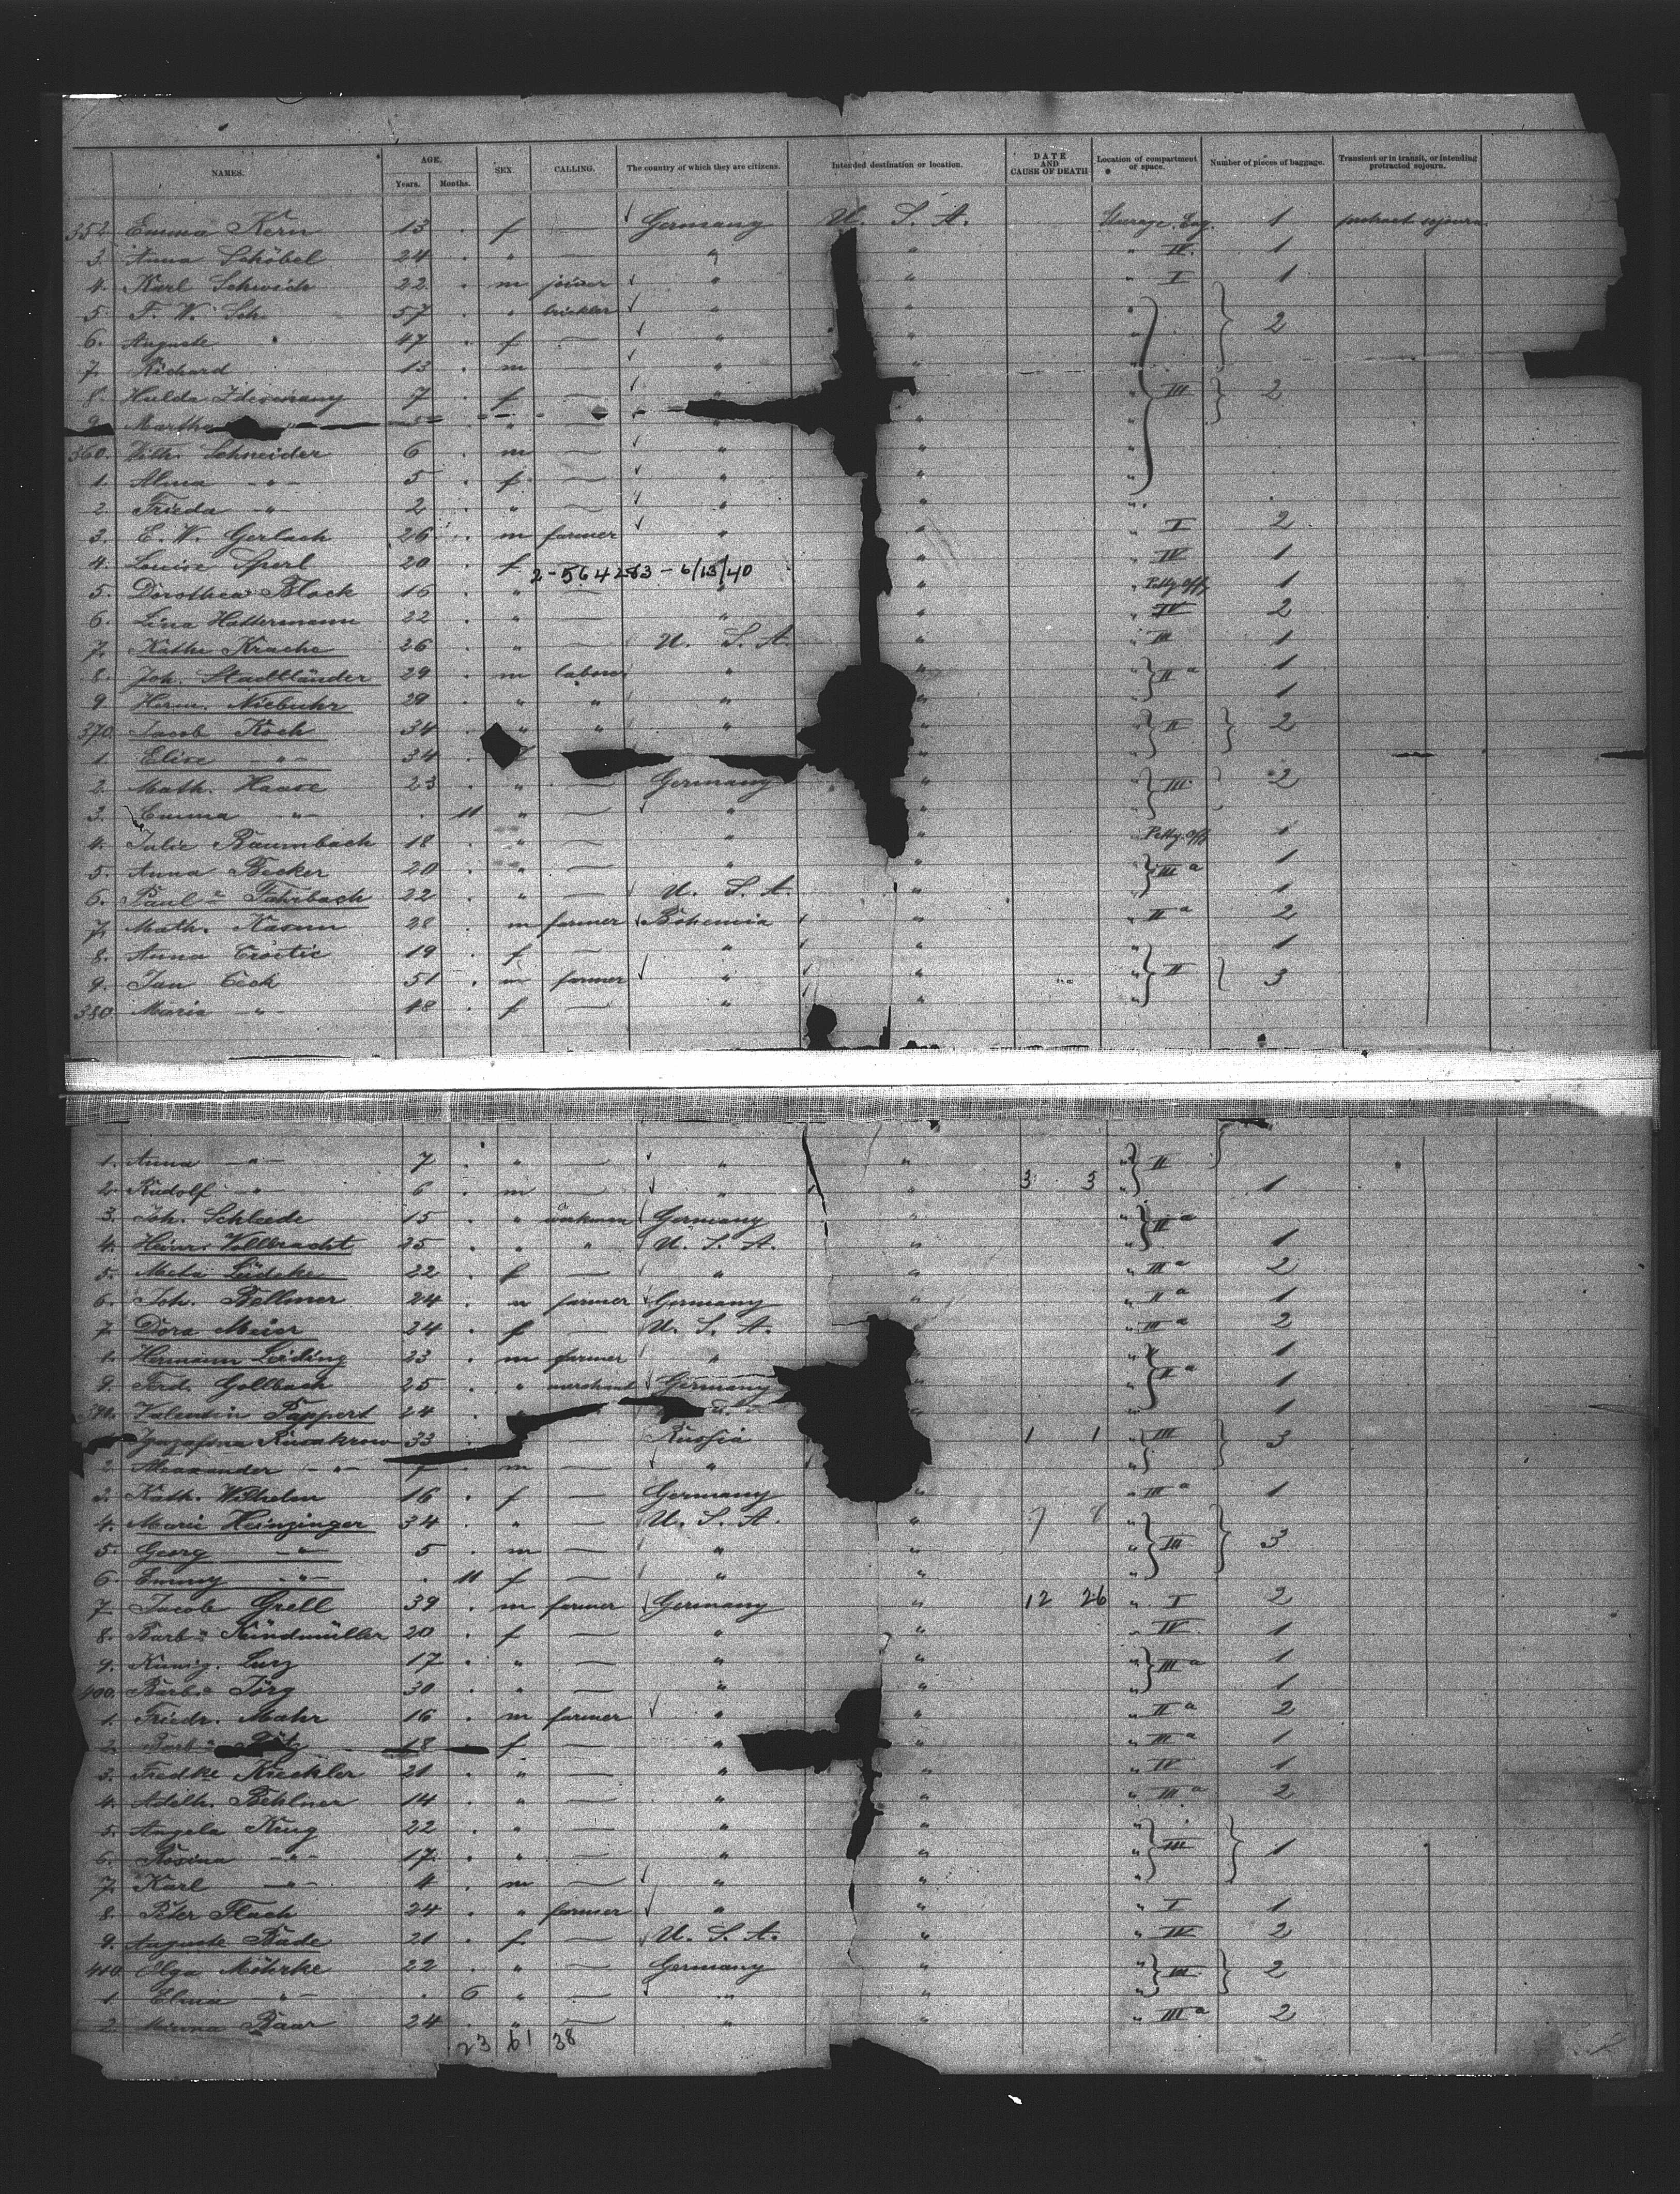 NAMES. AGE. Years. Months. SEX. CALLING. The country of which they are citizens. Intended destination or location. DATE AND CAUSE OF DEATH Location of compartment or space. Number of pieces of baggage. Transient or in transit, or intending protracted sojourn.
352 Emma Kern 13 . f — Germany U. S. A. Steerage 1 protract sojourn
3. Anna Schöbel 24 . " — " " " IV. 1
4. Karl 22 . m joiner " " " I 1
5. F. W. Sch 57 . " " " " 2
6. Auguste 47 . f — " " "
7. Richard 13 . m — " " "
8. Hulda 7 . f — " " " III 2
9. Martha " — " " "
360. Wilh. Schneider 6 m — " " "
1. Alma -"- 5 . f — " " "
2. Frieda -"- 2 . " — " " "
3. E. W. Gerlach 26 . m farmer " " " I 2
4. Louise Sperl 20 . f 2-564283-6/13/40 " " IV 1
5. Dorothea Block 16 . " — " " " Petty Off 1
6. Lina Hattermann 22 . " — " " IV 2
7. Käthe Krache 26 . " — U. S. A. " " III 1
8. Joh. Stadtländer 29 . m labour " " " II a 1
9. Herm. Niebuhr 29 . " " " " " 1
370 Jacob Koch 34 . " " " " " II 2
1. Elise -"- 34 . "
2. Math. Haase 23 . " — Germany " " III 2
3. Emma -"- . 11 " — " " "
4. Julie Baumbach 18 . " — " " " Petty. Off 1
5. Anna Becker 20 . " — " " " III a 1
6. Paul Fahrbach 22 . " — U. S. A. " " 1
7. Math. 28 . m farmer Bohemia " " II a 2
8. Anna 19 . f — " " " II 1
9. Jan Cech 51 . m farmer " " " 3
380. Maria -"- 48 . f " " "
1. Anna -"- 7 . " — " " " II
2. Rudolf -"- 6 . m — " " 3 5 " 1
3. Joh. Schleede 15 . " workman Germany " II a
4. Heinr. Vollbracht 25 . " " U. S. A. " " 1
5. Meta Lüdeke 22 . f — " " " III a 2
6. Joh. Bellmer 24 . m farmer Germany " " II a 1
7. Dora Meier 24 . f — U. S. A. " III a 2
8. Hermann Leiding 23 . m farmer " " II a 1
9. Ferd. Gollbach 25 . " merchant Germany " " 1
390. Valentin Pappert 24 . " 1
33 — Russia 1 1 " III 3
2. Alexander -"- 7 . m — " "
3. Kath. Wilhelm 16 . f — Germany " " III a 1
4. Marie Heinzinger 34 . " — U. S. A. " 7 8 " III 3
5. Georg -"- 5 . m — " " "
6. Emmy -"- . 11 f — " " "
7. Jacob Grell 39 . m farmer Germany " 12 26 " I 2
8. Barb. Kündmüller 20 . f — " " " IV. 1
9. Kunig. Lurz 17 . " — " " " III a 1
400. Barb. Jörg 30 . " — " " " 1
1. Friedr. Mahr 16 . m farmer " " " II a 2
2. Barb. 18 f — " " " III a 1
3. Fredke Kreckler 21 . " — " " " IV 1
4. Adelh. 14 . " — " " " III a 2
5. Angela Krug 22 . " — " " " III 1
6. Rosina -"- 17 . " — " " "
7. Karl -"- 4 . m — " " "
8. Peter Flach 24 . " farmer " " " I 1
9. Auguste Bade 21 . f — U. S. A. " " IV 2
410 Olga Möhrke 22 . " — Germany " " III. 2
1. Elma -"- . 6 " — " " "
2. Minna Baar 24 . " — " " " III a 2
23 61 38